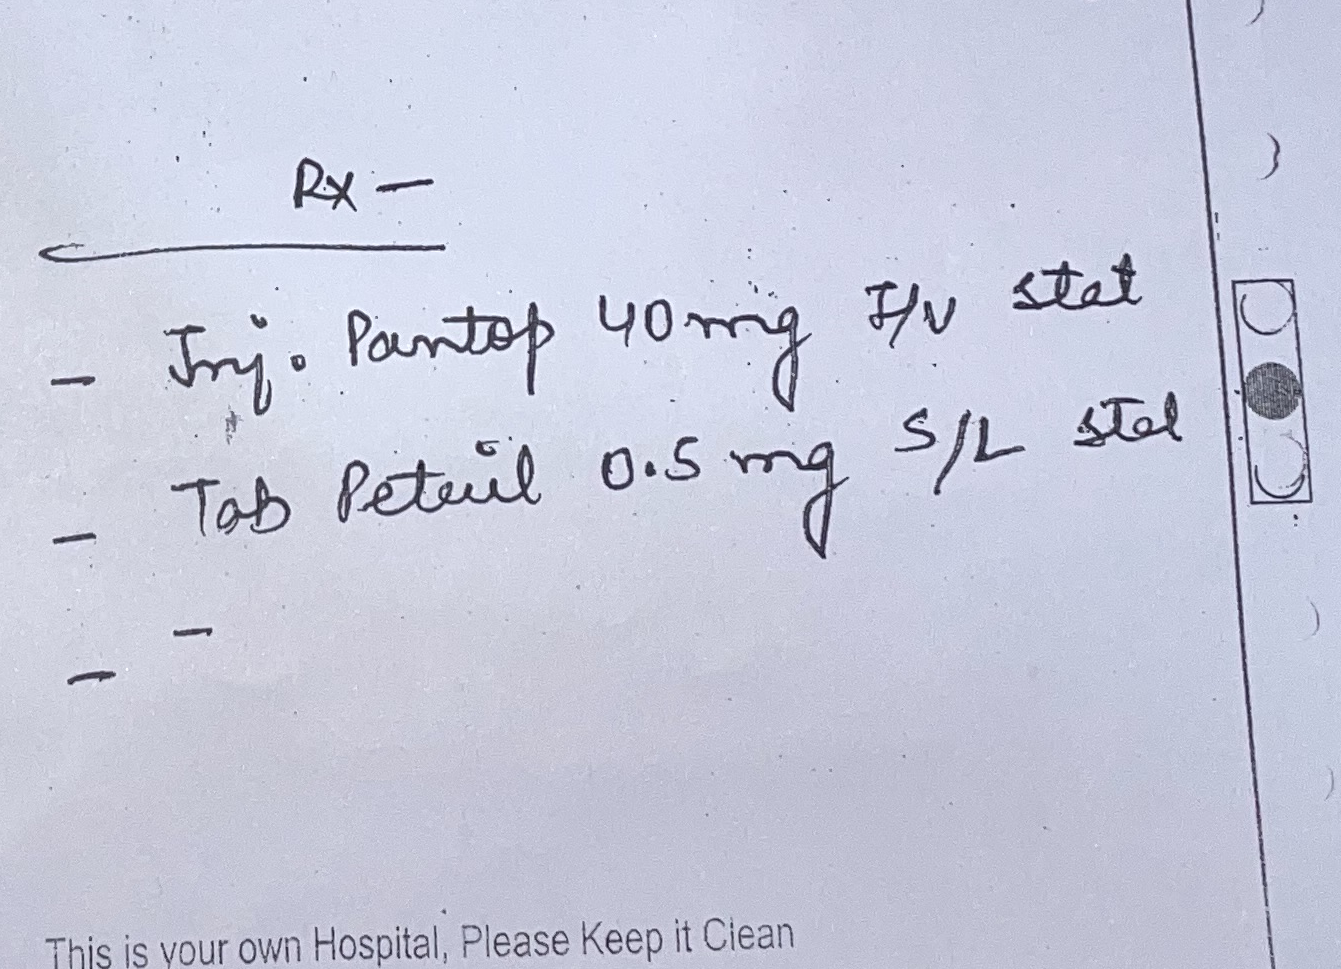 Rx —
- Inj. Pantop 40 mg I/V stat
- Tab Petril 0.5 mg S/L stat
-
-
This is your own Hospital, Please Keep it Clean